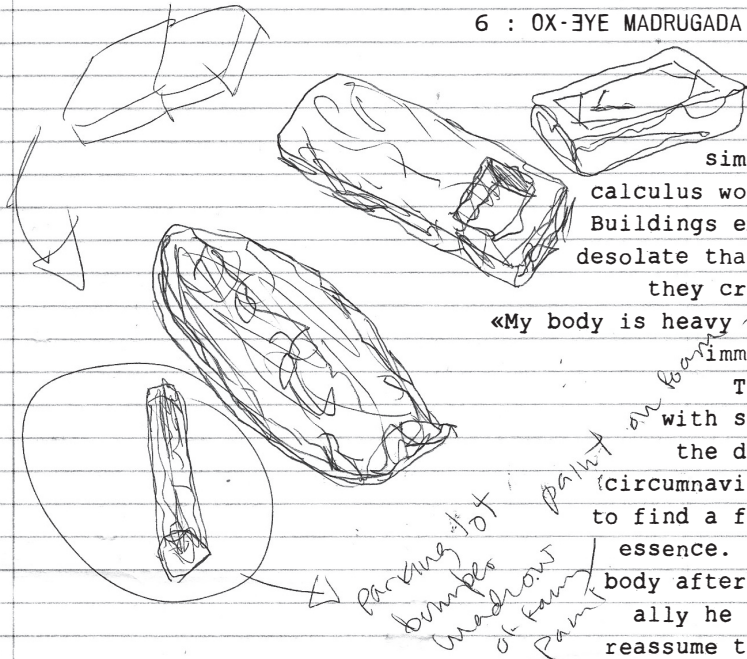 6 : OX-ƎYE MADRUGADA
sim
calculus wo
Buildings e
desolate tha
they cr
«My body is heavy
imm
T
with s
the d
circumnavi
to find a f
essence.
body after
ally he
reassume t
paint on foam
parking lot
bumper
paint